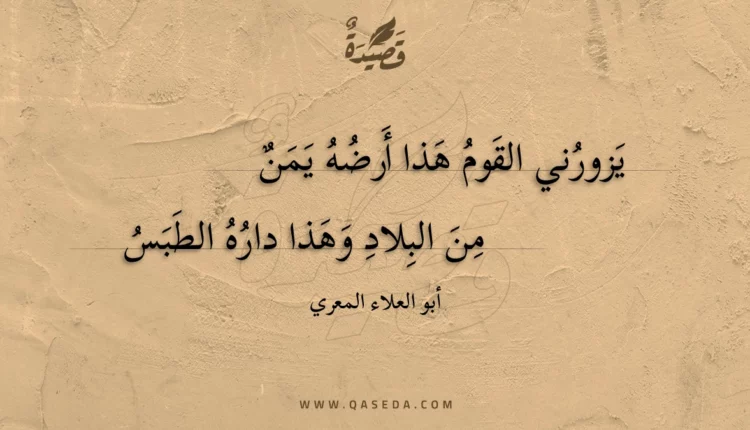 قَصِيْدَةٌ
يَزورُني القَومُ هَذا أَرضُهُ يَمَنٌ
مِنَ البِلادِ وَهَذا دارُهُ الطَبَسُ
أبو العلاء المعري
WWW.QASEDA.COM